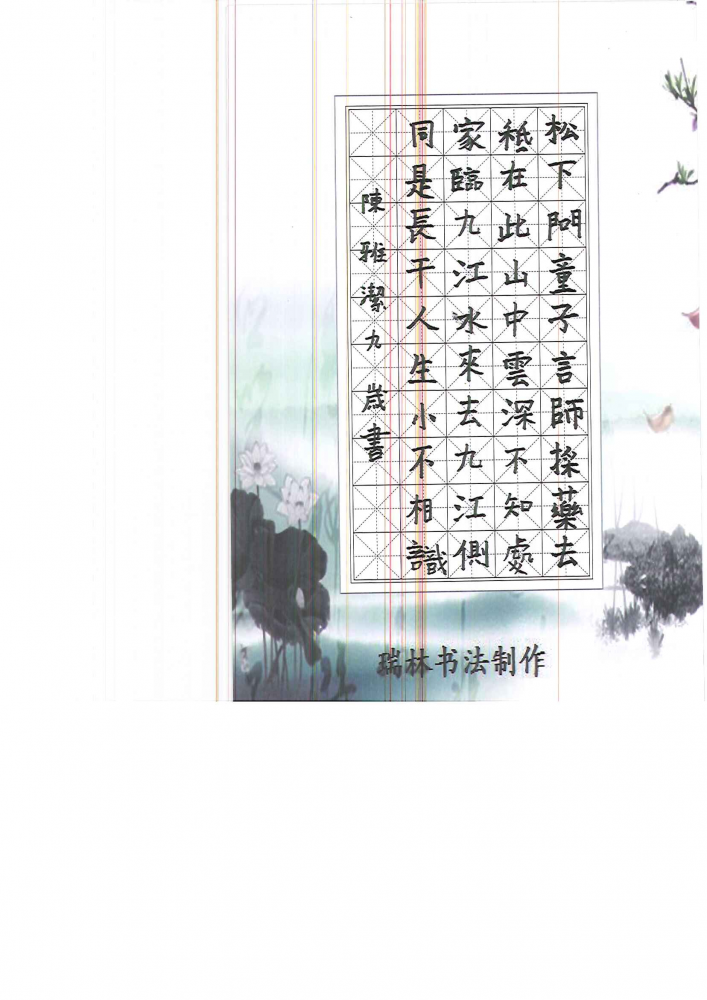 松下問童子言師採藥去
秪在此山中雲深不知處
家臨九江水來去九江側
同是長干人生小不相識
陳雅潔九歲書
瑞林书法制作